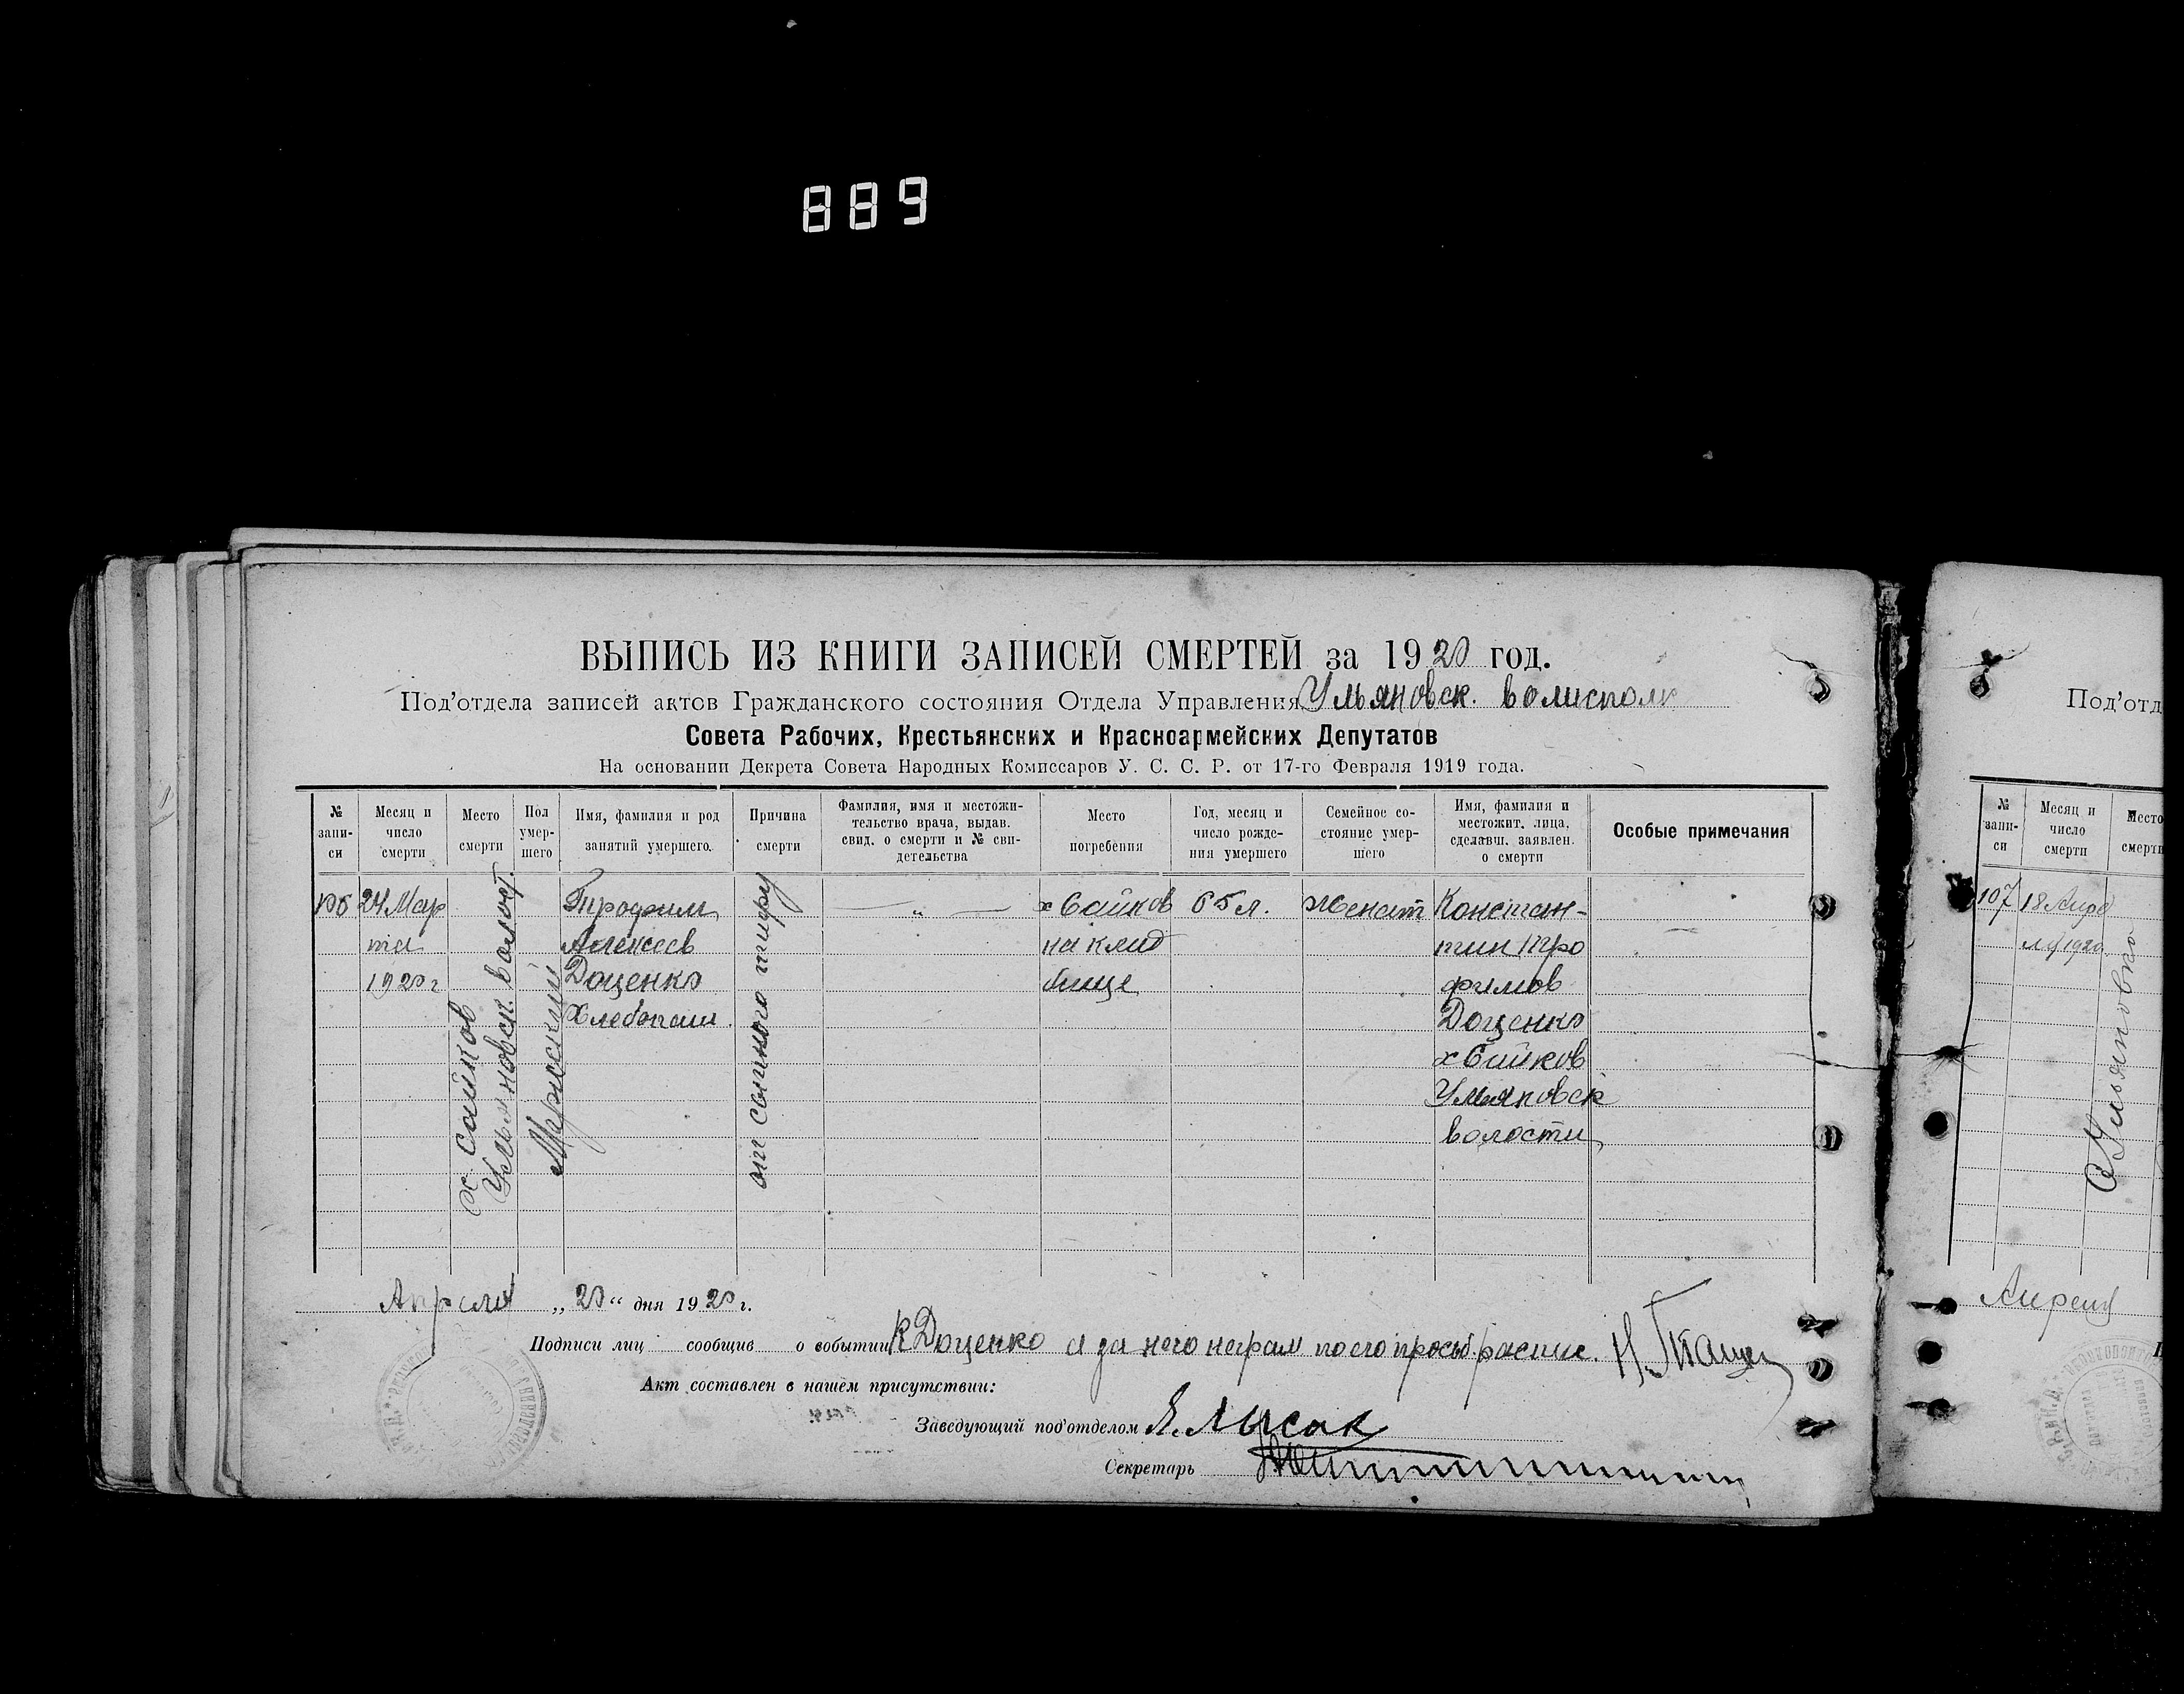 889
ВЫПИСЬ ИЗ КНИГИ ЗАПИСЕЙ СМЕРТЕЙ за 1920 год.
Под'отдела записей актов Гражданского состояния Отдела Управления Ульяновск. волисполк
Совета Рабочих, Крестьянских и Красноармейских Депутатов
На основании Декрета Совета Народных Комиссаров У. С. С. Р. от 17-го Февраля 1919 года.
№ запи- си
Месяц и число смерти
Место смерти
Пол умер- шего
Имя, фамилия и род занятий умершего.
Причина смерти
Фамилия, имя и местожи- тельство врача, выдав. свид. о смерти и № сви- детельства
Место погребения
Год, месяц и число рожде- ния умершего
Семейное со- стояние умер- шего
Имя, фамилия и местожит. лица, сделавш. заявлен. о смерти
Особые примечания
24 Мар
та
1920 г
Ульяновск. волост.
Мужской
Трофим
Алексеев
Доценко
Хлебопаш.
от сыпного тифу
— „ —
на клад
бище
65 л.
женат
Констан-
тин Тро
фимов
Доценко
Ульяновск
волости
Апреля „20“ дня 1920 г.
Подписи лиц сообщив о событии К Доценко а за него неграм по его просьб. распис.
Акт составлен в нашем присутствии:
Заведующий под'отделом Я. Лысак
Секретарь
Под'отд
№ запи- си
Месяц и число смерти
Место смерти
107
18 Апре
ля 1920
Ульяновка
Апреля